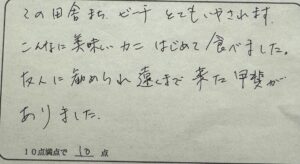 この田舎まち ビーチ とてもいやされます.
こんなに美味いカニ はじめて食べました。
友人に勧められ遠くまで来た甲斐が
ありました.
10点満点で 10 点